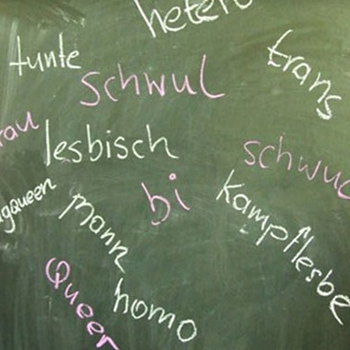 hetero
tunte
trans
schwul
rau
lesbisch
schwuc
bi
gqueen
Kampflesbe
mann
Queer
homo